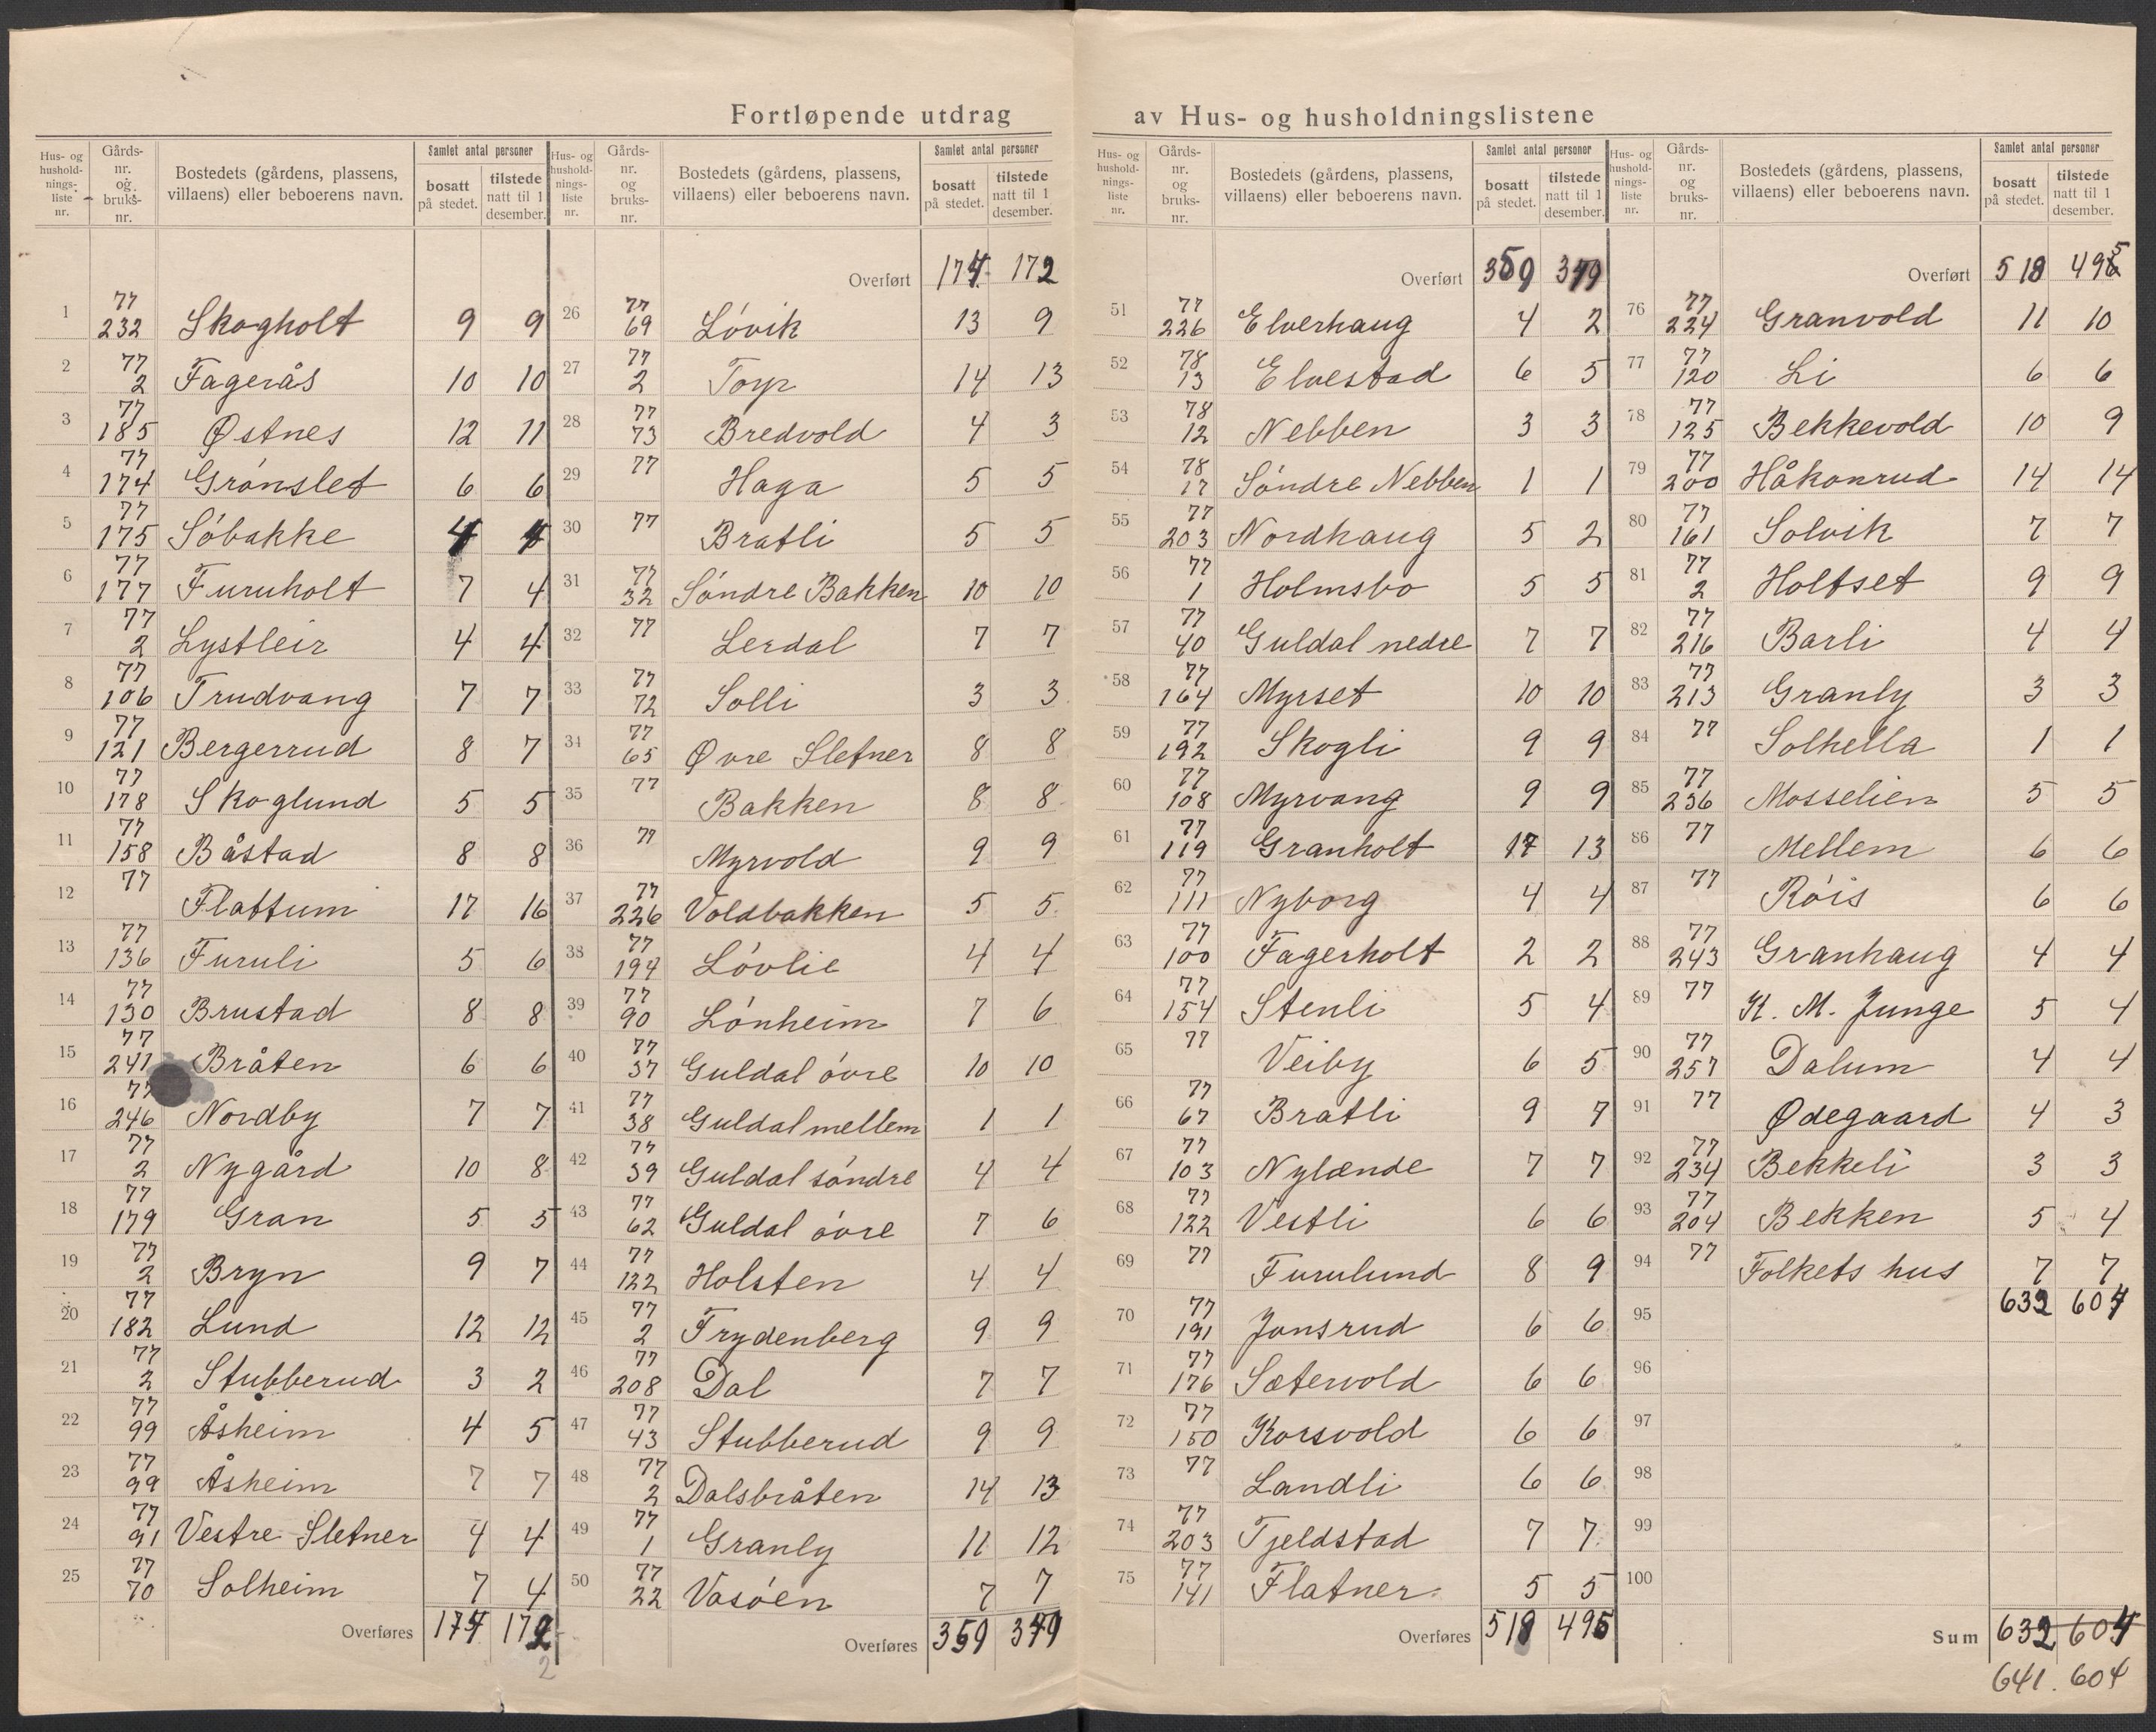 Fortløpende utdrag av Hus- og husholdningslistene
Hus- og husholdnings- liste nr. | Gårds- nr. og bruks- nr. | Bostedets (gårdens, plassens, villaens) eller beboerens navn. | Samlet antal personer | bosatt på stedet. | tilstede natt til 1 desember.
1 77 232 Skogholt 9 9
2 77 2 Fagerås 10 10
3 77 185 Østnes 12 11
4 77 174 Grónslet 6 6
5 77 175 Sóbakke 4 4
6 77 177 Furuholt 7 4
7 77 2 Lystleir 4 4
8 77 106 Trudvang 7 7
9 77 121 Bergerrud 8 7
10 77 178 Skoglund 5 5
11 77 158 Båstad 8 8
12 77 Flattum 17 16
13 77 136 Furuli 5 6
14 77 130 Brustad 8 8
15 77 241 Bråten 6 6
16 77 246 Nordby 7 7
17 77 2 Nygård 10 8
18 77 179 Gran 5 5
19 77 2 Bryn 9 7
20 77 182 Lund 12 12
21 77 2 Stubberud 3 2
22 77 99 Åsheim 4 5
23 77 99 Åsheim 7 7
24 77 91 Vestre Sletner 4 4
25 77 70 Solheim 7 4
Overføres 174 172
2
Hus- og husholdnings- liste nr. | Gårds- nr. og bruks- nr. | Bostedets (gårdens, plassens, villaens) eller beboerens navn. | Samlet antal personer | bosatt på stedet. | tilstede natt til 1 desember.
Overført 174 172
26 77 69 Lóvik 13 9
27 77 2 Torp 14 13
28 77 73 Bredvold 4 3
29 77 Haga 5 5
30 77 Bratli 5 5
31 77 32 Sóndre Bakken 10 10
32 77 Lerdal 7 7
33 77 72 Solli 3 3
34 77 65 Øvre Sletner 8 8
35 77 Bakken 8 8
36 77 Myrvold 9 9
37 77 226 Voldbakken 5 5
38 77 194 Lóvlie 4 4
39 77 90 Lónheim 7 6
40 77 37 Guldal óvre 10 10
41 77 38 Guldal mellem 1 1
42 77 39 Guldal sóndre 4 4
43 77 62 Guldal óvre 7 6
44 77 122 Holsten 4 4
45 77 2 Frydenberg 9 9
46 77 208 Dal 7 7
47 77 43 Stubberud 9 9
48 77 2 Dalsbråten 14 13
49 77 1 Granly 11 12
50 77 22 Vasóen 7 7
Overføres 359
Hus- og husholdnings- liste nr. | Gårds- nr. og bruks- nr. | Bostedets (gårdens, plassens, villaens) eller beboerens navn. | Samlet antal personer | bosatt på stedet. | tilstede natt til 1 desember.
Overført 359
51 77 226 Elverhaug 4 2
52 78 13 Elvestad 6 5
53 78 12 Nebben 3 3
54 78 17 Sóndre Nebben 1 1
55 77 203 Nordhaug 5 2
56 77 1 Holmsbo 5 5
57 77 40 Guldal nedre 7 7
58 77 164 Myrset 10 10
59 77 192 Skogli 9 9
60 77 108 Myrvang 9 9
61 77 119 Granholt 17 13
62 77 111 Nyborg 4 4
63 77 100 Fagerholt 2 2
64 77 154 Stenli 5 4
65 77 Veiby 6 5
66 77 67 Bratli 9 7
67 77 103 Nylænde 7 7
68 77 122 Vestli 6 6
69 77 Furulund 8 9
70 77 191 Jonsrud 6 6
71 77 176 Sætervold 6 6
72 77 150 Korsvold 6 6
73 77 Landli 6 6
74 77 203 Tjeldstad 7 7
75 77 141 Flatner 5 5
Overføres 518 495
Hus- og husholdnings- liste nr. | Gårds- nr. og bruks- nr. | Bostedets (gårdens, plassens, villaens) eller beboerens navn. | Samlet antal personer | bosatt på stedet. | tilstede natt til 1 desember.
Overført 518 495
76 77 224 Granvold 11 10
77 77 120 Li 6 6
78 77 125 Bekkevold 10 9
79 77 200 Håkonrud 14 14
80 77 161 Solvik 7 7
81 77 2 Holtset 9 9
82 77 216 Barli 4 4
83 77 213 Granly 3 3
84 77 Solhella 1 1
85 77 236 Mosselien 5 5
86 77 Mellem 6 6
87 77 Róis 6 6
88 77 243 Granhaug 4 4
89 77 K. M. Junge 5 4
90 77 257 Dalum 4 4
91 77 Ødegaard 4 3
92 77 234 Bekkeli 3 3
93 77 204 Bekken 5 4
94 77 Folkets hus 7 7
95 632 604
96
97
98
99
100
Sum 632 604
641. 604